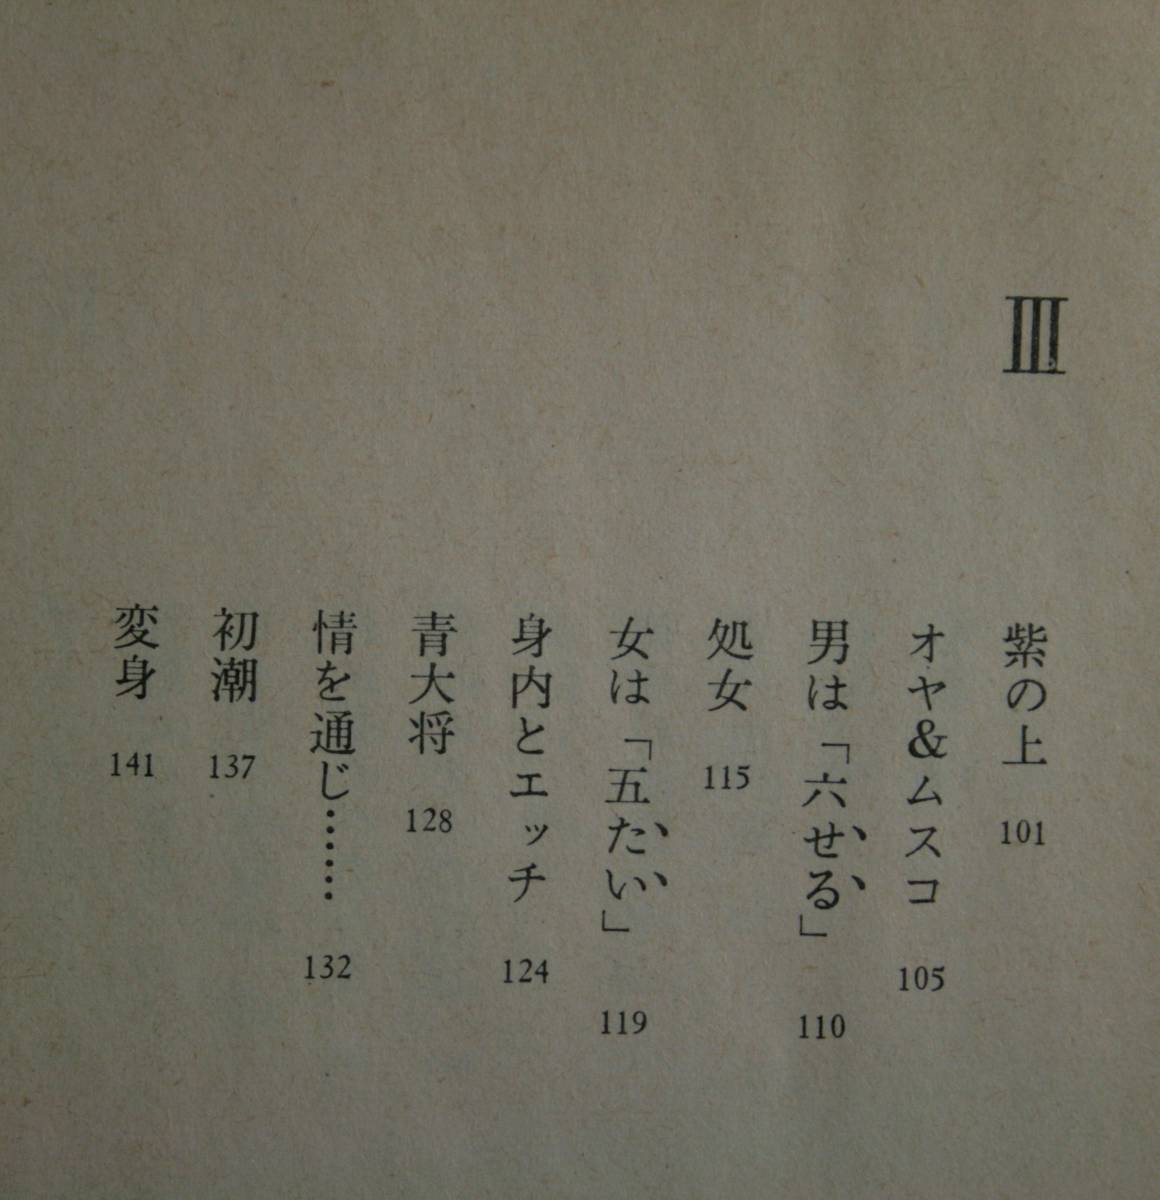 Ⅲ
紫の上 101
オヤ&ムスコ 105
男は「六せる」 110
処女 115
女は「五たい」 119
身内とエッチ 124
青大将 128
情を通じ…… 132
初潮 137
変身 141